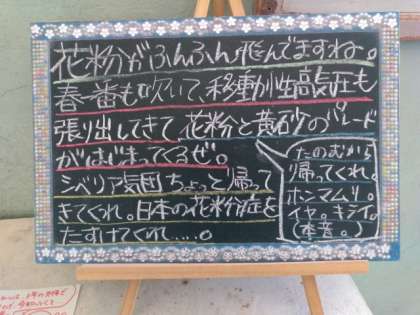 花粉がふんふん飛んでますね。
春一番も吹いて、移動性高気圧も
張り出してきて花粉と黄砂のパレード
がはじまってるぜ。
シベリア気団ちょっと帰って
きてくれ。日本の花粉症を
たすけてくれ.....。
たのむから
帰ってくれ。
ホンマムリ。
イヤ。キライ。
(本音。)